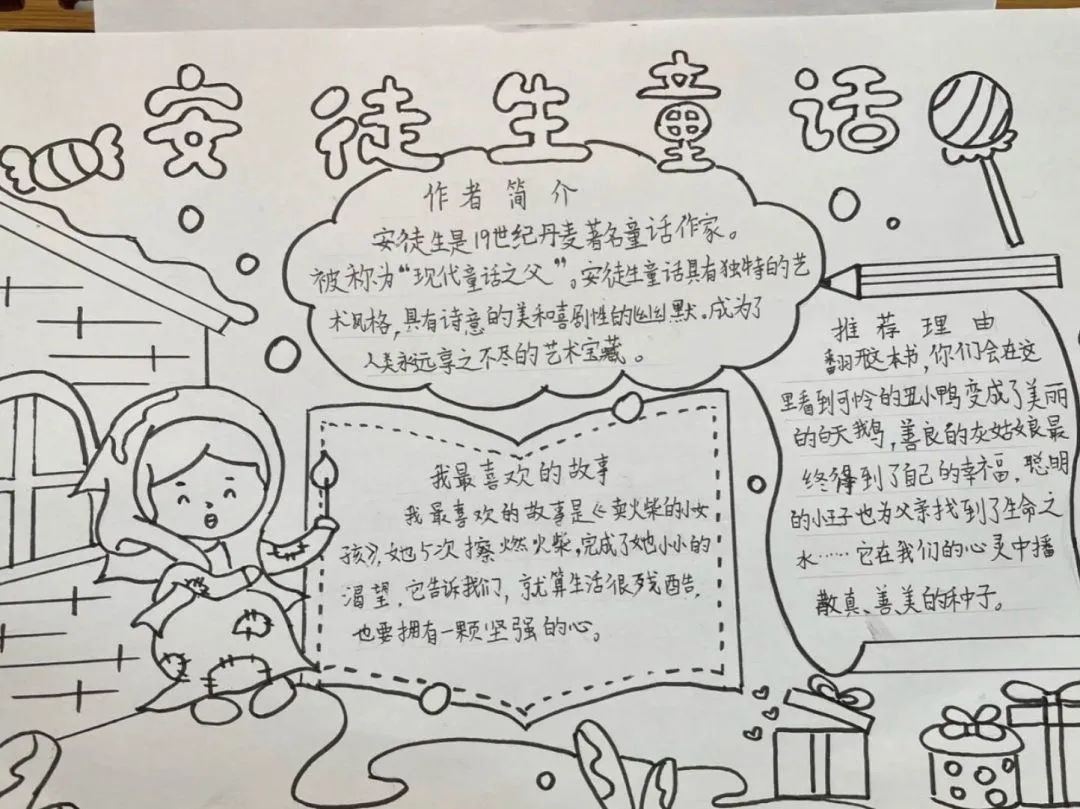 安徒生童话
作者简介
安徒生是19世纪丹麦著名童话作家。
被称为“现代童话之父”。安徒生童话具有独特的艺
术风格,具有诗意的美和喜剧性的幽默。成为了
人类永远享之不尽的艺术宝藏。
我最喜欢的故事
我最喜欢的故事是《卖火柴的小女
孩》,她5次擦燃火柴,完成了她小小的
渴望,它告诉我们,就算生活很残酷,
也要拥有一颗坚强的心。
推荐理由
翻开这本书,你们会在这
里看到可怜的丑小鸭变成了美丽
的白天鹅,善良的灰姑娘最
终得到了自己的幸福,聪明
的小王子也为父亲找到了生命之
水……它在我们的心灵中播
散真、善、美的种子。